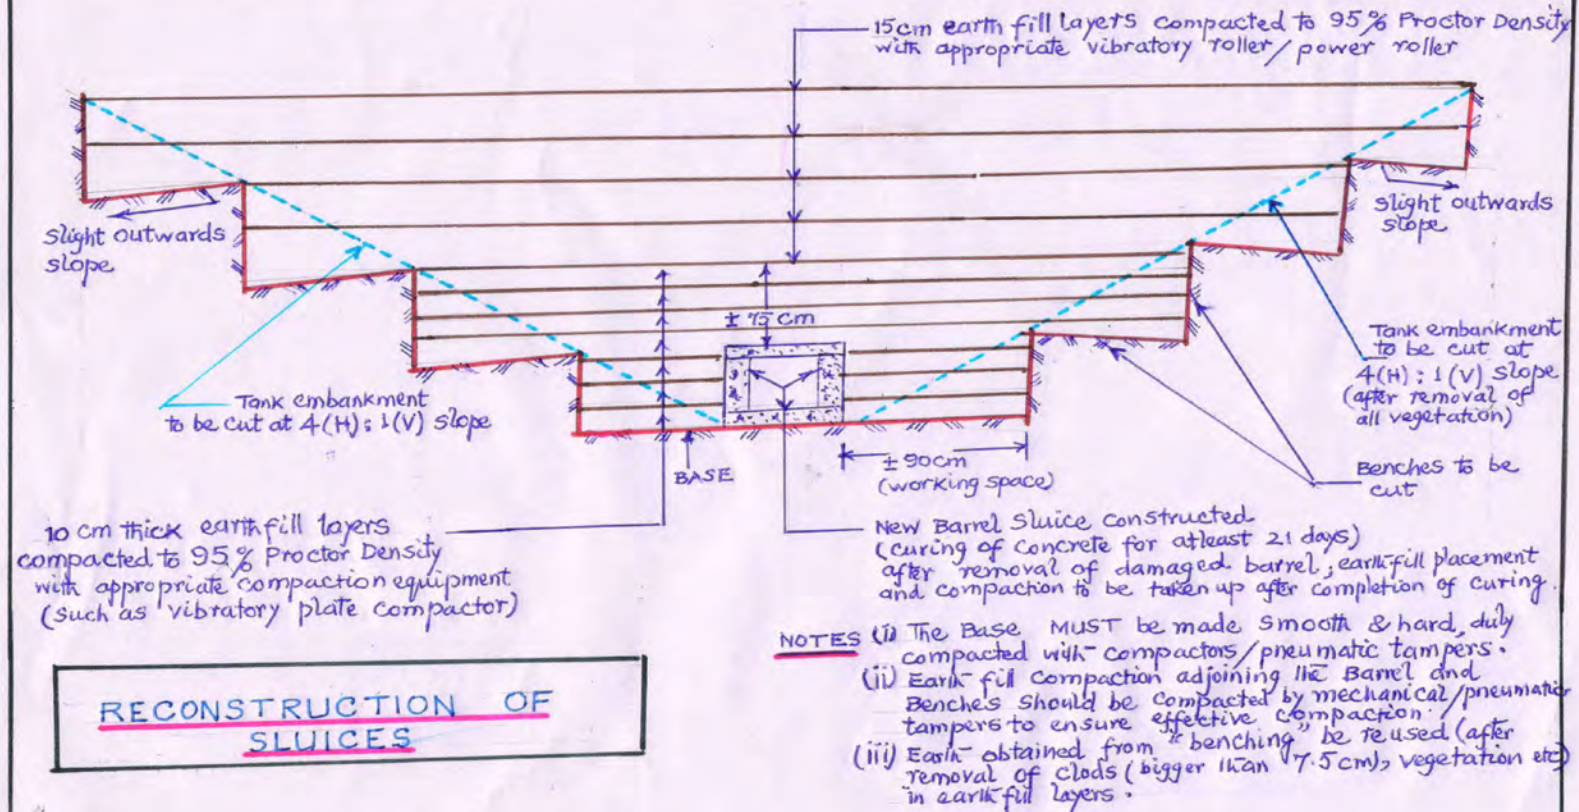 15cm earth fill layers compacted to 95% Proctor Density
with appropriate vibratory roller/power roller
slight outwards
slope
slight outwards
slope
± 75 cm
Tank embankment
to be cut at 4(H):1(V) slope
Tank embankment
to be cut at
4(H):1(V) slope
(after removal of
all vegetation)
BASE
± 90cm
(working space)
Benches to be
cut
10 cm thick earthfill layers
compacted to 95% Proctor Density
with appropriate compaction equipment
(such as vibratory plate compactor)
New Barrel Sluice constructed
(curing of concrete for atleast 21 days)
after removal of damaged barrel; earth-fill placement
and compaction to be taken up after completion of curing.
NOTES (i) The Base MUST be made smooth & hard, duly
compacted with compactors/pneumatic tampers.
(ii) Earth fill compaction adjoining the Barrel and
Benches should be compacted by mechanical/pneumatic
tampers to ensure effective compaction.
(iii) Earth obtained from "benching" be reused (after
removal of clods (bigger than 7.5cm), vegetation etc)
in earth fill layers.
RECONSTRUCTION OF
SLUICES